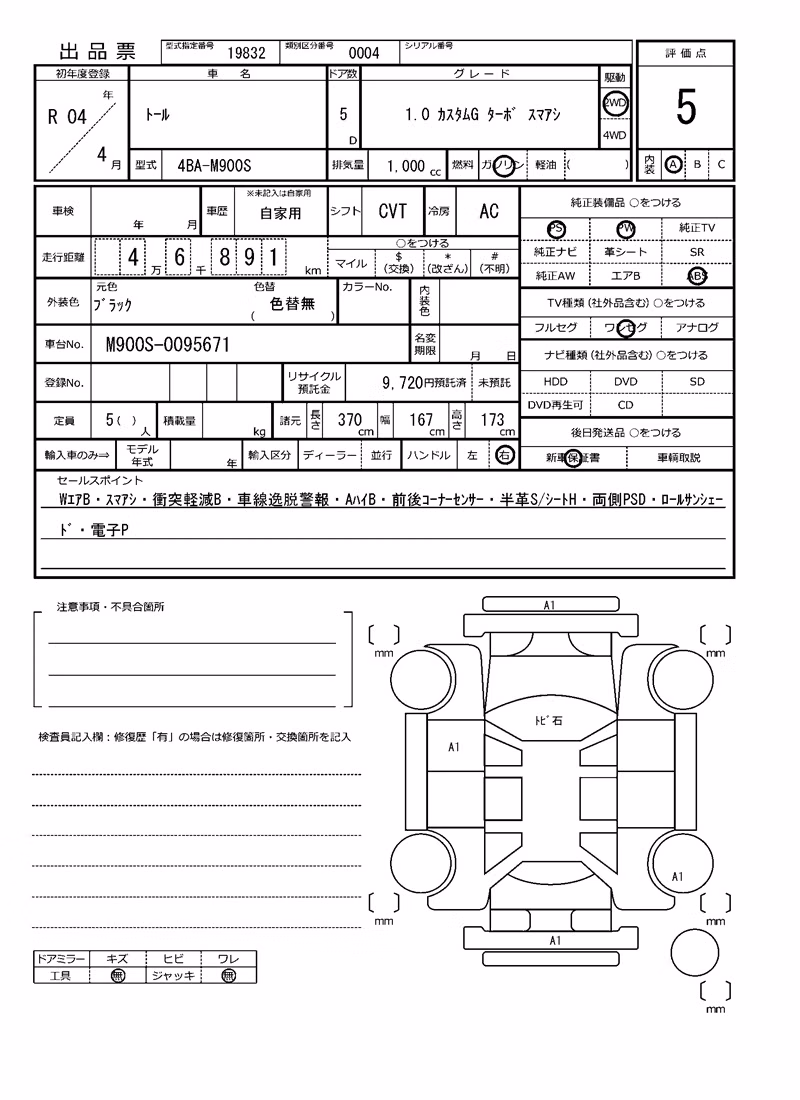 出品票 型式指定番号 19832 類別区分番号 0004 シリアル番号
評価点
5
内装 A B C
初年度登録 車名 ドア数 グレード 駆動
R 04 年 4 月 トール 5 D 1.0 カスタムG ターボ スマアシ 2WD
4WD
型式 4BA-M900S 排気量 1,000 cc 燃料 ガソリン 軽油 ( )
車検 年 月 車歴 ※未記入は自家用 自家用 シフト CVT 冷房 AC
走行距離 4 万 6 千 8 9 1 km
○をつける
マイル $(交換) *(改ざん) #(不明)
外装色 元色 ブラック 色替 ( 色替無 ) カラーNo. 内装色
車台No. M900S-0095671 名変期限 月 日
登録No. リサイクル預託金 9,720円預託済 未預託
定員 5( ) 人 積載量 kg 諸元 長さ 370 cm 幅 167 cm 高さ 173 cm
輸入車のみ⇒ モデル年式 年 輸入区分 ディーラー 並行 ハンドル 左 右
純正装備品 ○をつける
PS PW 純正TV
純正ナビ 革シート SR
純正AW エアB ABS
TV種類(社外品含む)○をつける
フルセグ ワンセグ アナログ
ナビ種類(社外品含む)○をつける
HDD DVD SD
DVD再生可 CD
後日発送品 ○をつける
新車保証書 車輌取説
セールスポイント
WエアB・スマアシ・衝突軽減B・車線逸脱警報・AハイB・前後コーナーセンサー・半革S/シートH・両側PSD・ロールサンシェー
ド・電子P
注意事項・不具合箇所
検査員記入欄:修復歴「有」の場合は修復箇所・交換箇所を記入
ドアミラー キズ ヒビ ワレ
工具 無 ジャッキ 無
A1
mm
mm
トビ石
A1
A1
mm
mm
A1
mm